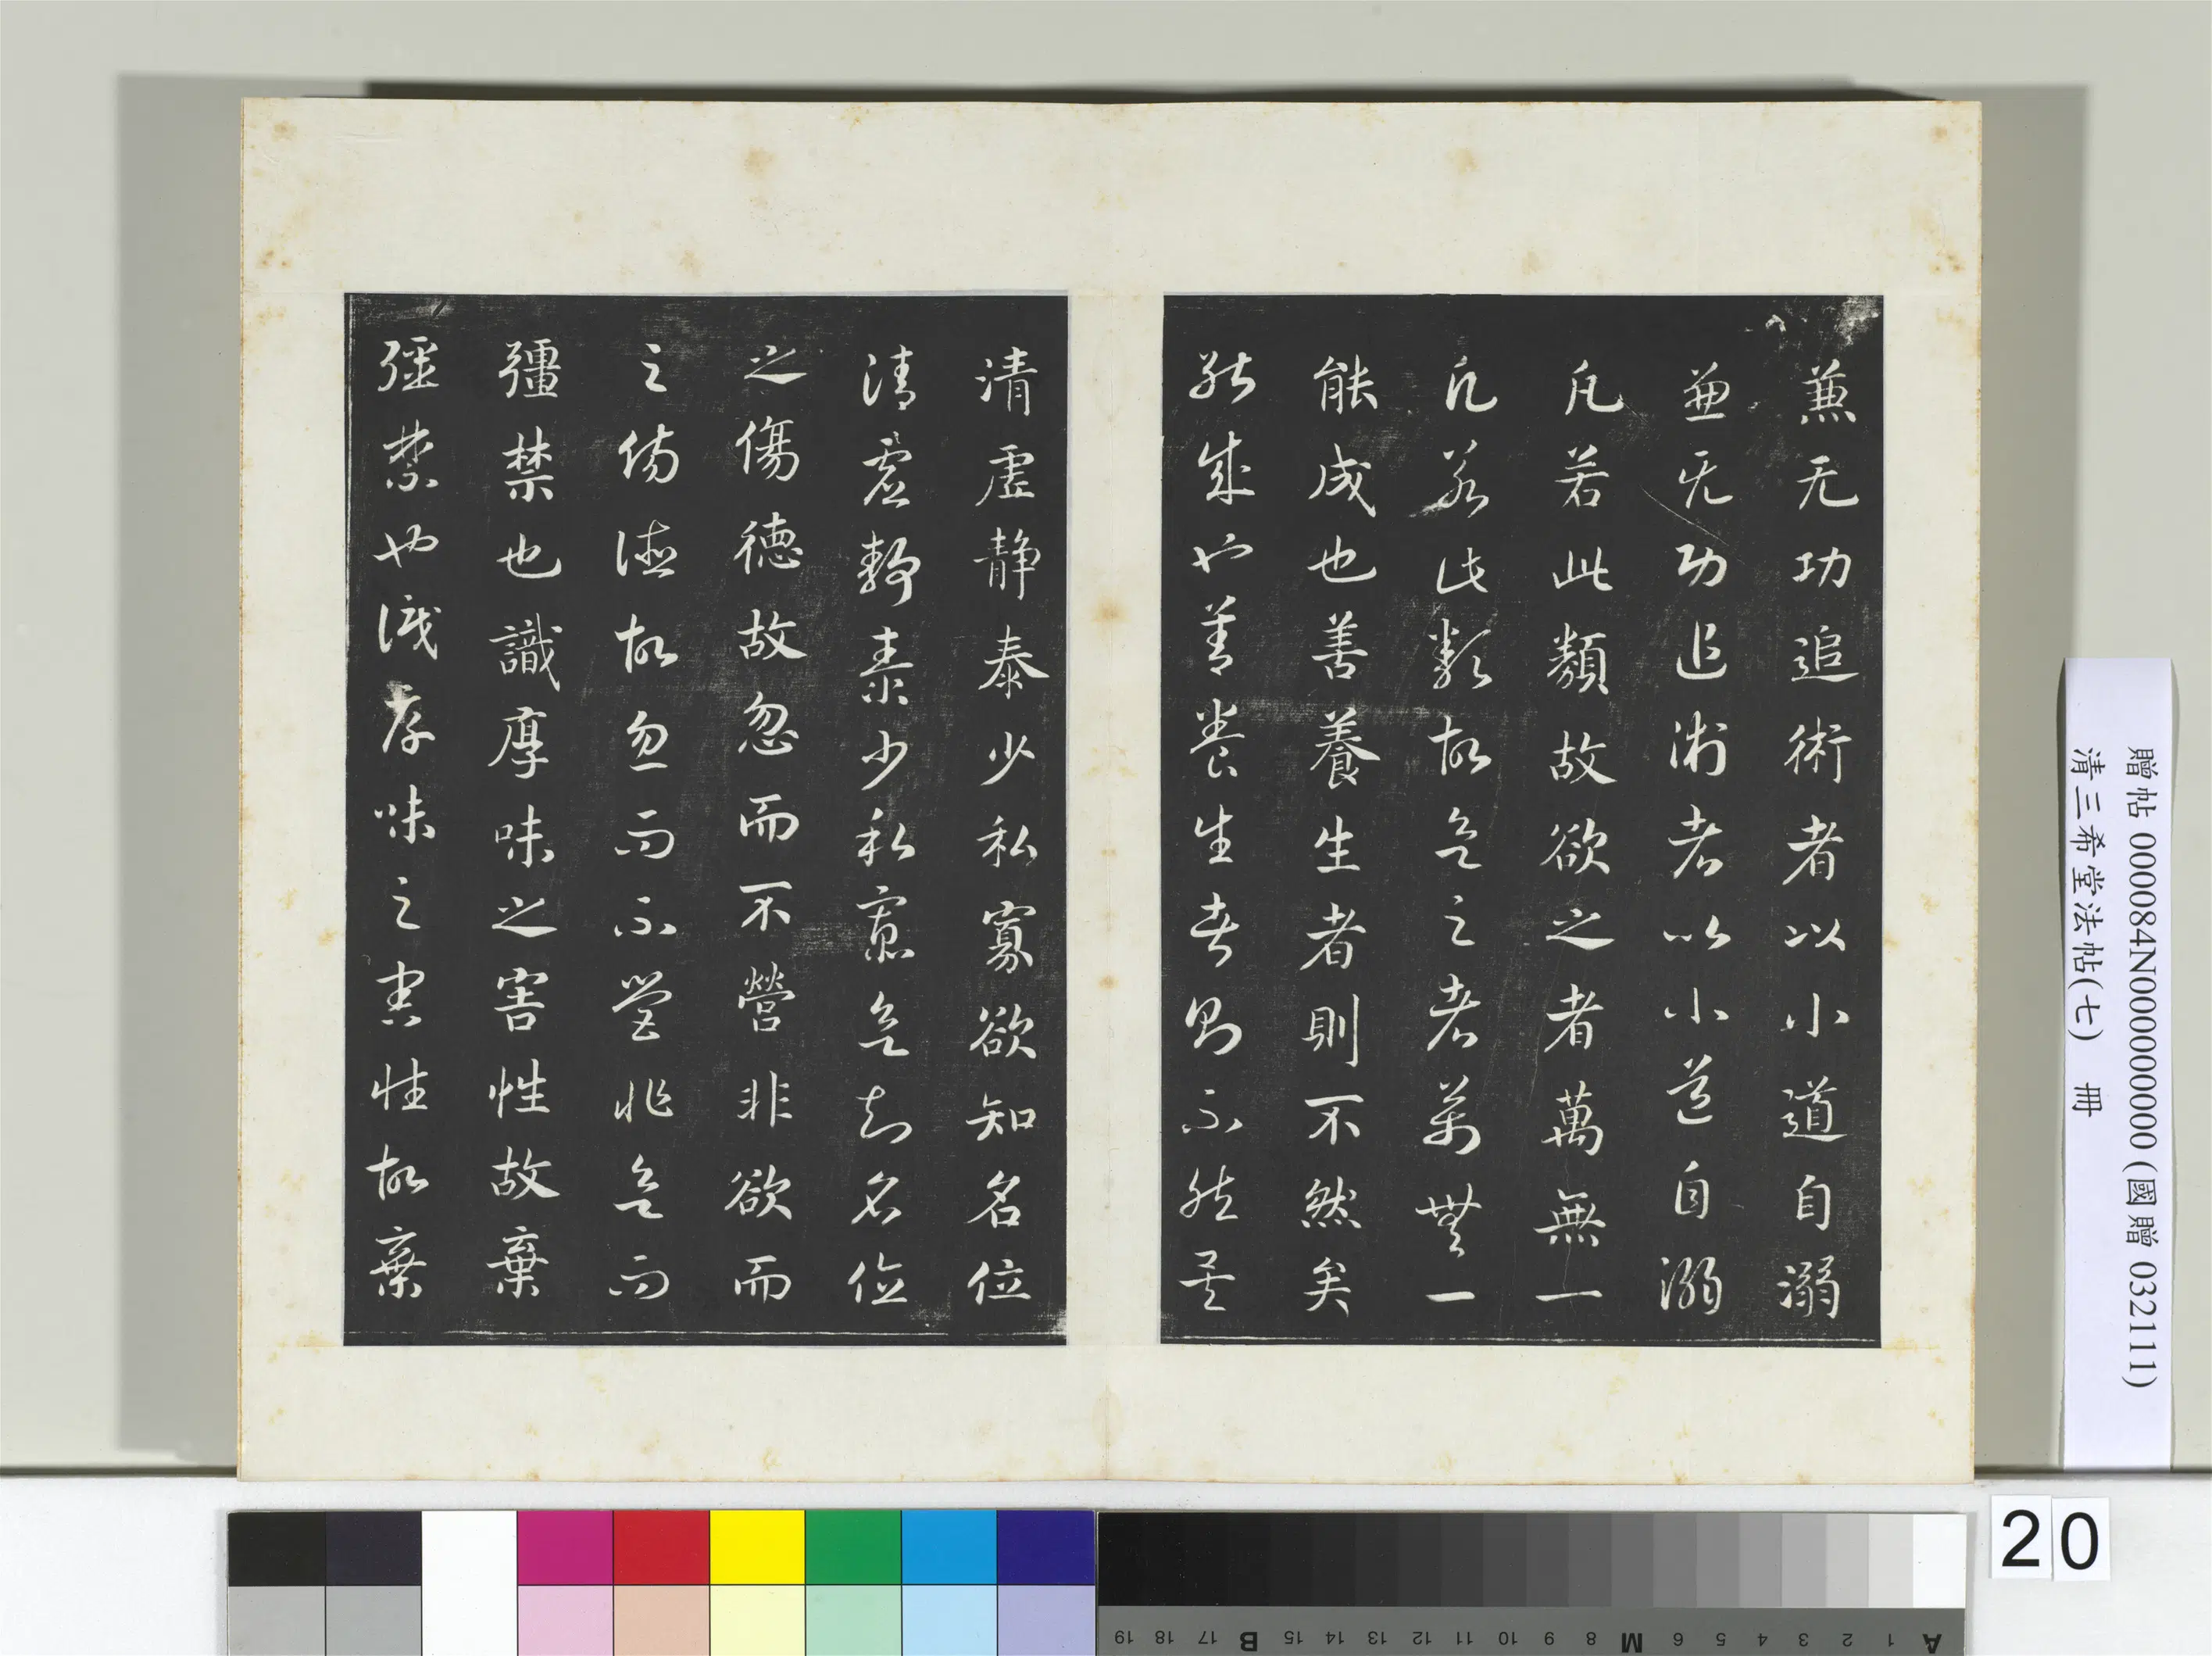 蕙无功追術者以小道自溺
兼无功追術者以小道自溺
凡若此類故欲之者萬無一
凡若此類故欲之者萬無一
能成也善養生者則不然矣
能成也善養生者則不然矣
清虛静泰少私寡欲知名位
清虛静泰少私寡欲知名位
之傷德故忽而不營非欲而
之傷德故忽而不營非欲而
彊禁也識厚味之害性故棄
彊禁也識厚味之害性故棄
贈帖 000084N000000000 (國贈 032111)
清三希堂法帖(七) 冊
20
A 1 2 3 4 5 6 M 8 9 10 11 12 13 14 15 B 17 18 19